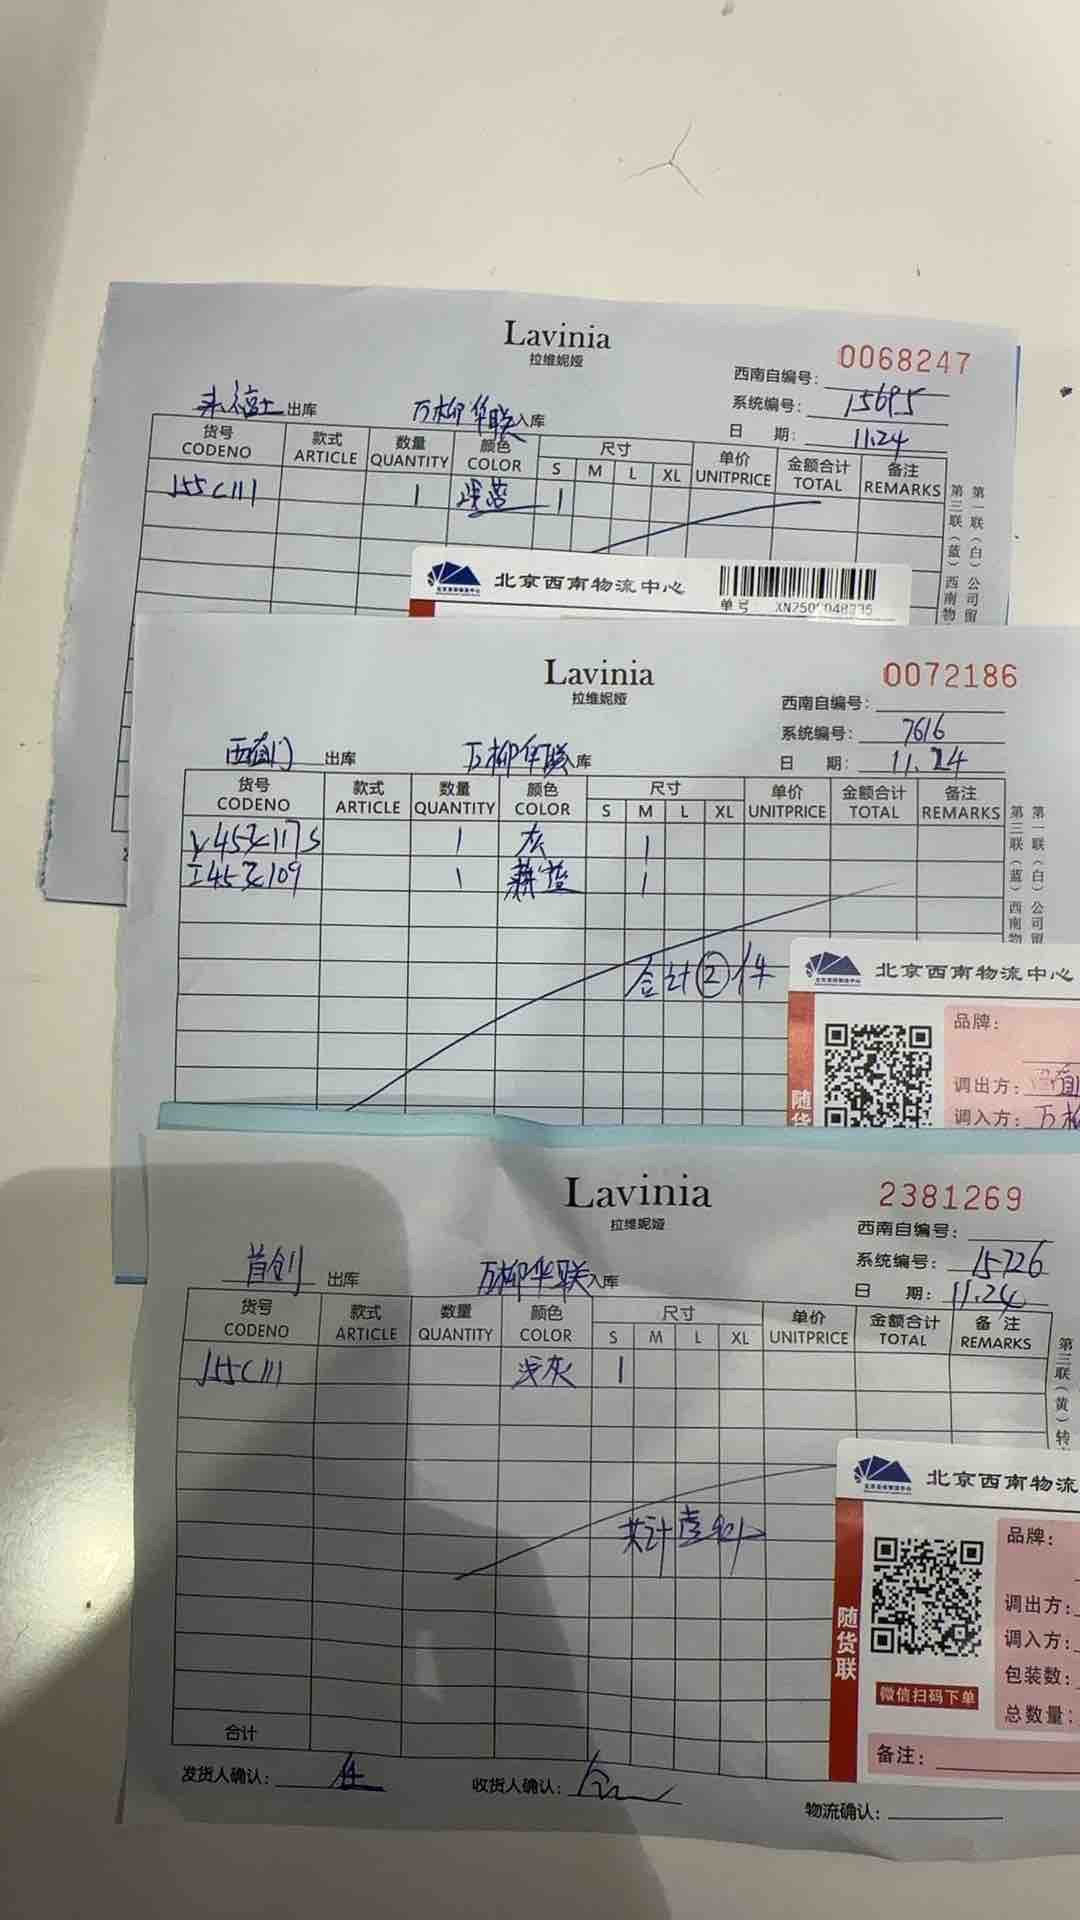 Lavinia
拉维妮娅
0068247
西南自编号:
系统编号: 15695
日 期: 11.24
来福士 出库 万柳华联 入库
货号 款式 数量 颜色 尺寸 单价 金额合计 备注
CODENO ARTICLE QUANTITY COLOR S M L XL UNITPRICE TOTAL REMARKS
J55C111 1 浅蓝 1
第一联(白)公司留
第三联(蓝)西南物
北京西南物流中心
单号:
Lavinia
拉维妮娅
0072186
西南自编号:
系统编号: 7616
日 期: 11.24
西直门 出库 万柳华联 入库
货号 款式 数量 颜色 尺寸 单价 金额合计 备注
CODENO ARTICLE QUANTITY COLOR S M L XL UNITPRICE TOTAL REMARKS
1 灰 1
1 1
合计②件
第一联(白)公司留
第三联(蓝)西南物
北京西南物流中心
品牌:
调出方: 西直门
调入方: 万柳
随货
Lavinia
拉维妮娅
2381269
西南自编号:
系统编号: 15726
日 期: 11.24
首创 出库 万柳华联 入库
货号 款式 数量 颜色 尺寸 单价 金额合计 备注
CODENO ARTICLE QUANTITY COLOR S M L XL UNITPRICE TOTAL REMARKS
J55C111 浅灰 1
共计壹件
第三联(黄)转
北京西南物流
品牌:
调出方:
调入方:
包装数:
总数量:
随货联
微信扫码下单
备注:
合计
发货人确认: 收货人确认: 物流确认: